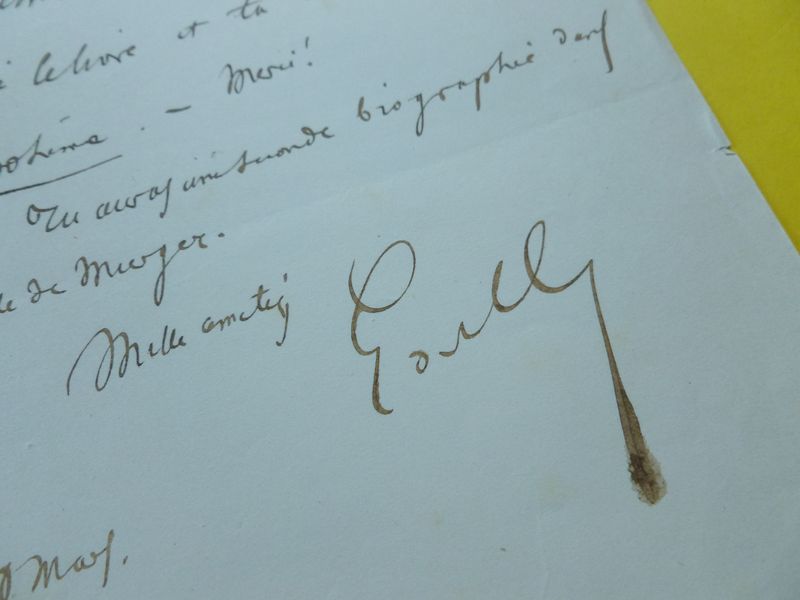 le livre et ta
Bohême. — Merci!
Tu auras une seconde biographie dans
de Murger.
Mille amitiés
Mars.